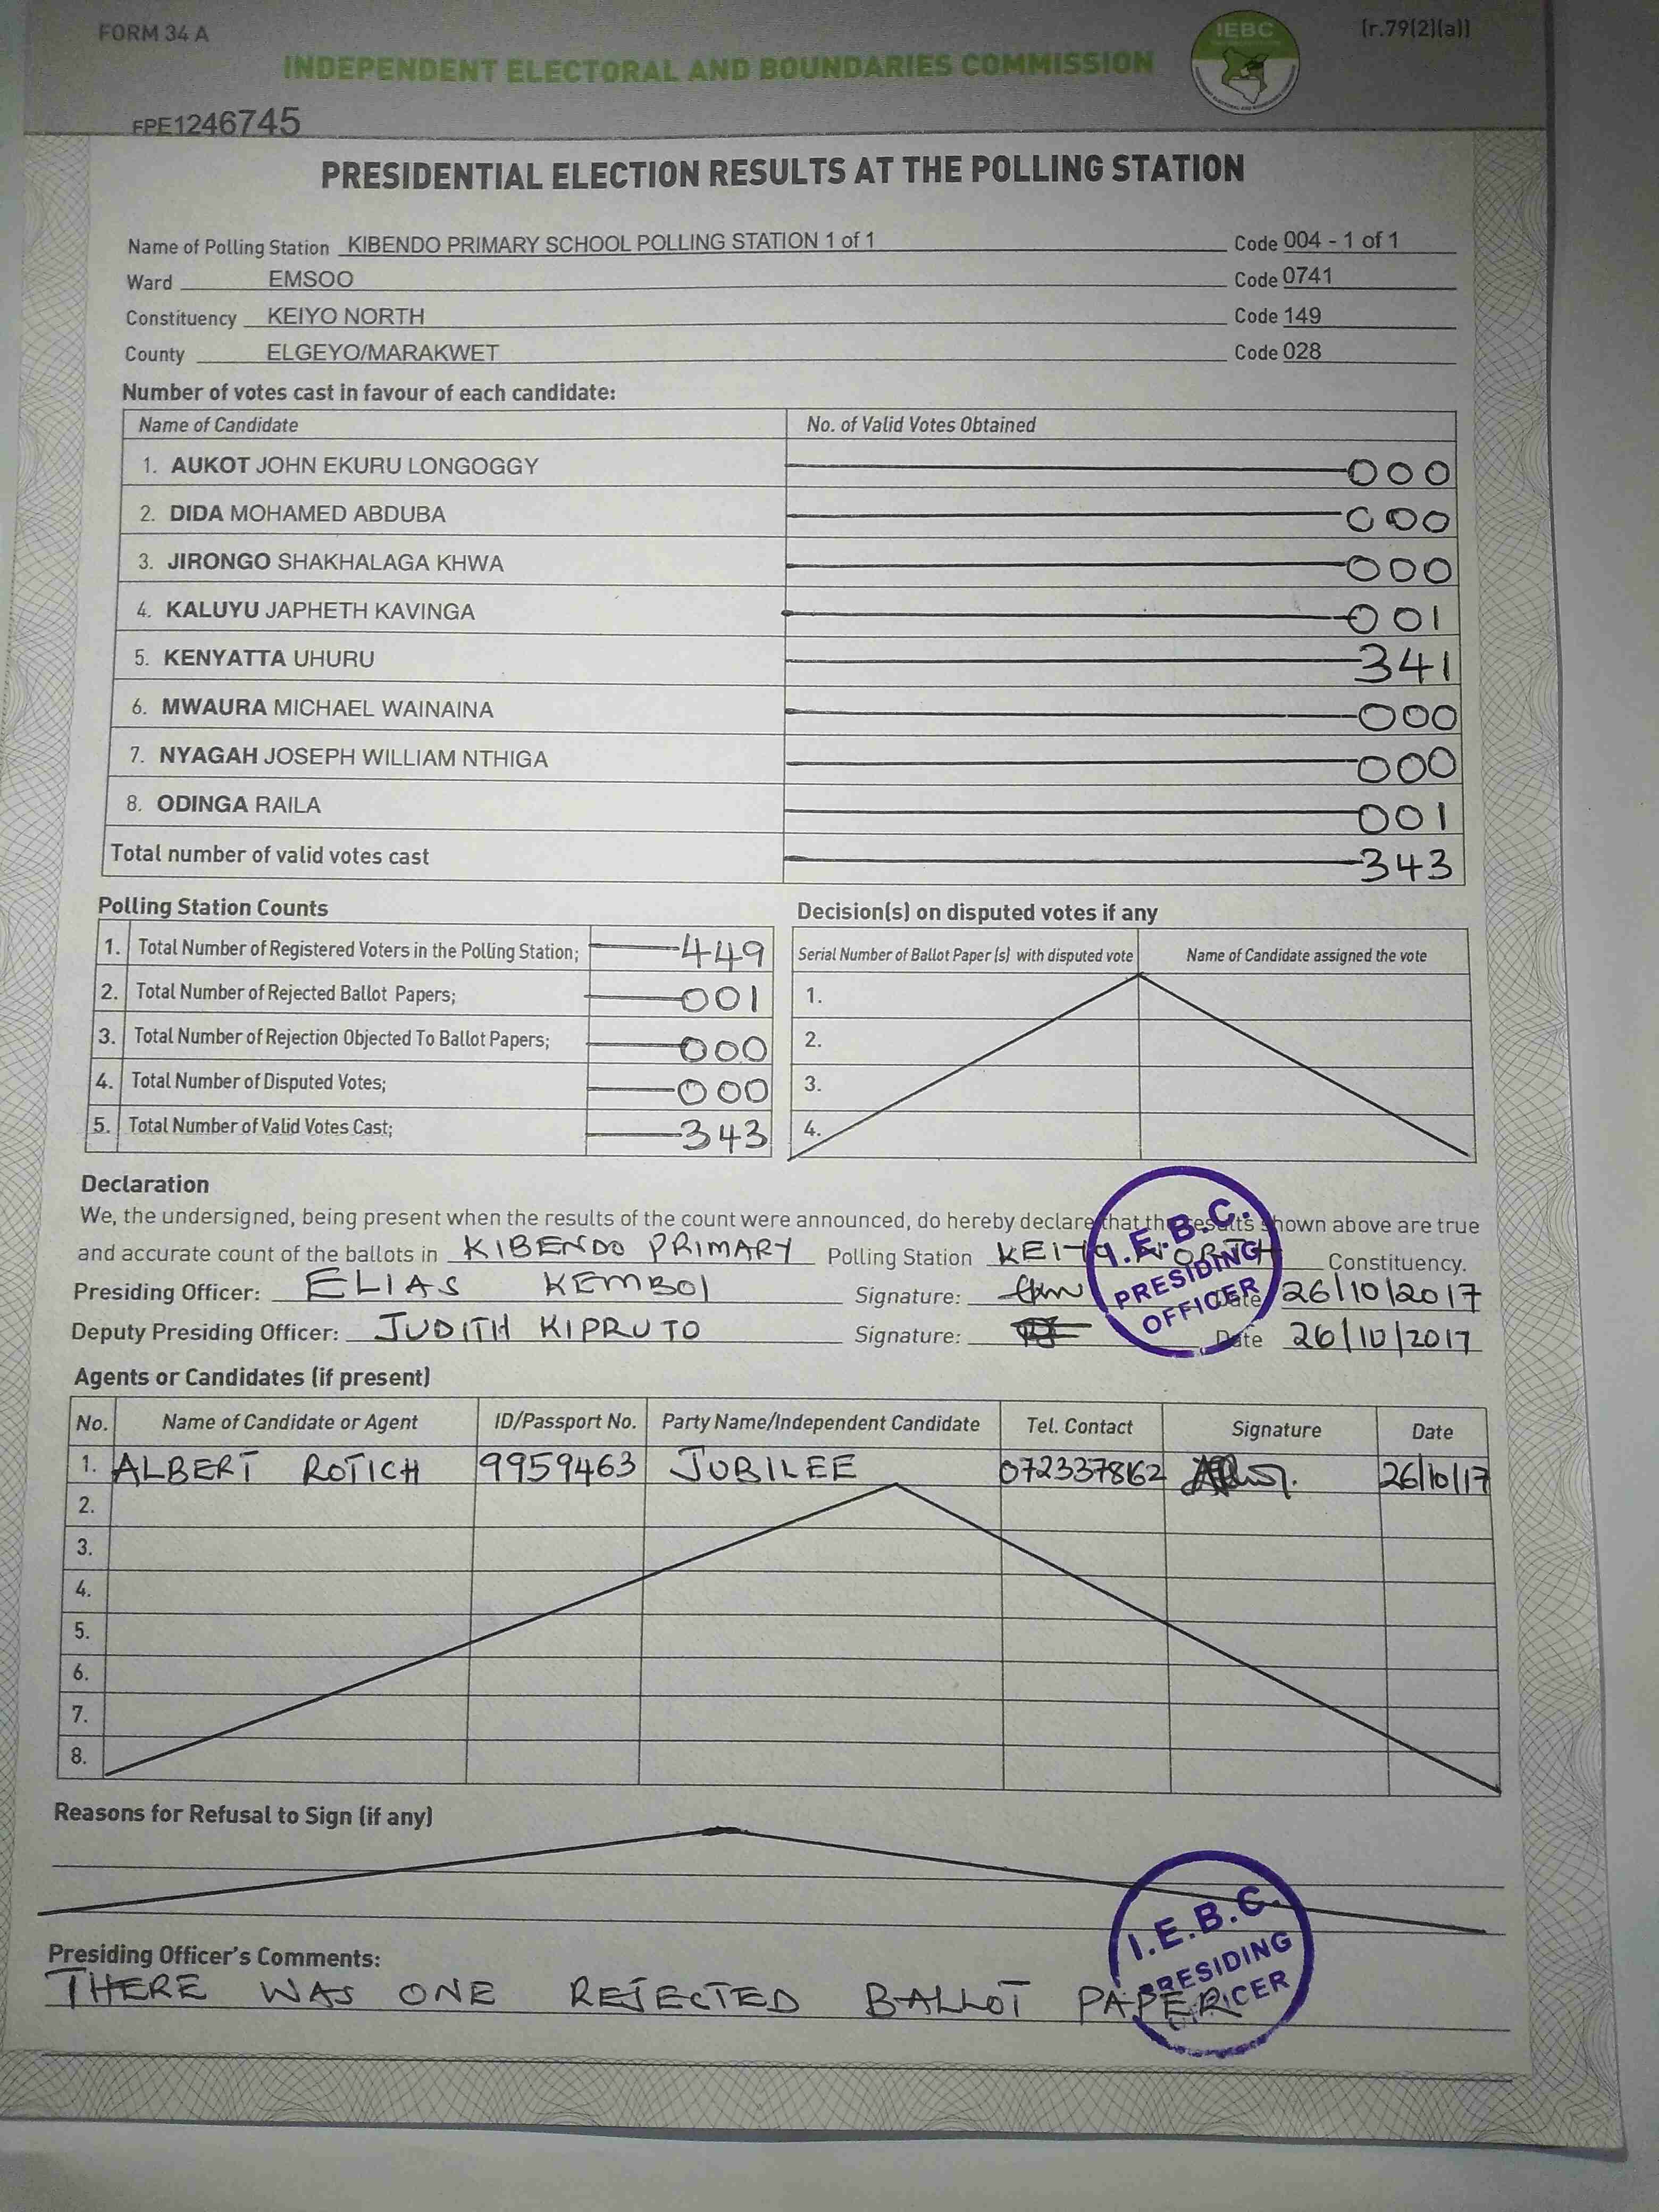 FORM 34 A
(r.79(2)(a))
IEBC
INDEPENDENT ELECTORAL AND BOUNDARIES COMMISSION
FPE1246745
PRESIDENTIAL ELECTION RESULTS AT THE POLLING STATION
Name of Polling Station KIBENDO PRIMARY SCHOOL POLLING STATION 1 of 1 Code 004 - 1 of 1
Ward EMSOO Code 0741
Constituency KEIYO NORTH Code 149
County ELGEYO/MARAKWET Code 028
Number of votes cast in favour of each candidate:
Name of Candidate No. of Valid Votes Obtained
1. AUKOT JOHN EKURU LONGOGGY 000
2. DIDA MOHAMED ABDUBA 000
3. JIRONGO SHAKHALAGA KHWA 000
4. KALUYU JAPHETH KAVINGA 001
5. KENYATTA UHURU 341
6. MWAURA MICHAEL WAINAINA 000
7. NYAGAH JOSEPH WILLIAM NTHIGA 000
8. ODINGA RAILA 001
Total number of valid votes cast 343
Polling Station Counts
1. Total Number of Registered Voters in the Polling Station; 449
2. Total Number of Rejected Ballot Papers; 001
3. Total Number of Rejection Objected To Ballot Papers; 000
4. Total Number of Disputed Votes; 000
5. Total Number of Valid Votes Cast; 343
Decision(s) on disputed votes if any
Serial Number of Ballot Paper (s) with disputed vote Name of Candidate assigned the vote
1.
2.
3.
4.
Declaration
We, the undersigned, being present when the results of the count were announced, do hereby declare that the results shown above are true
and accurate count of the ballots in KIBENDO PRIMARY Polling Station KEIYO NORTH Constituency.
Presiding Officer: ELIAS KEMBOI Signature: Date 26/10/2017
Deputy Presiding Officer: JUDITH KIPRUTO Signature: Date 26/10/2017
I.E.B.C.
PRESIDING
OFFICER
Agents or Candidates (if present)
No. Name of Candidate or Agent ID/Passport No. Party Name/Independent Candidate Tel. Contact Signature Date
1. ALBERT ROTICH 9959463 JUBILEE 0723378162 26/10/17
2.
3.
4.
5.
6.
7.
8.
Reasons for Refusal to Sign (if any)
Presiding Officer's Comments:
THERE WAS ONE REJECTED BALLOT PAPER
I.E.B.C.
PRESIDING
OFFICER